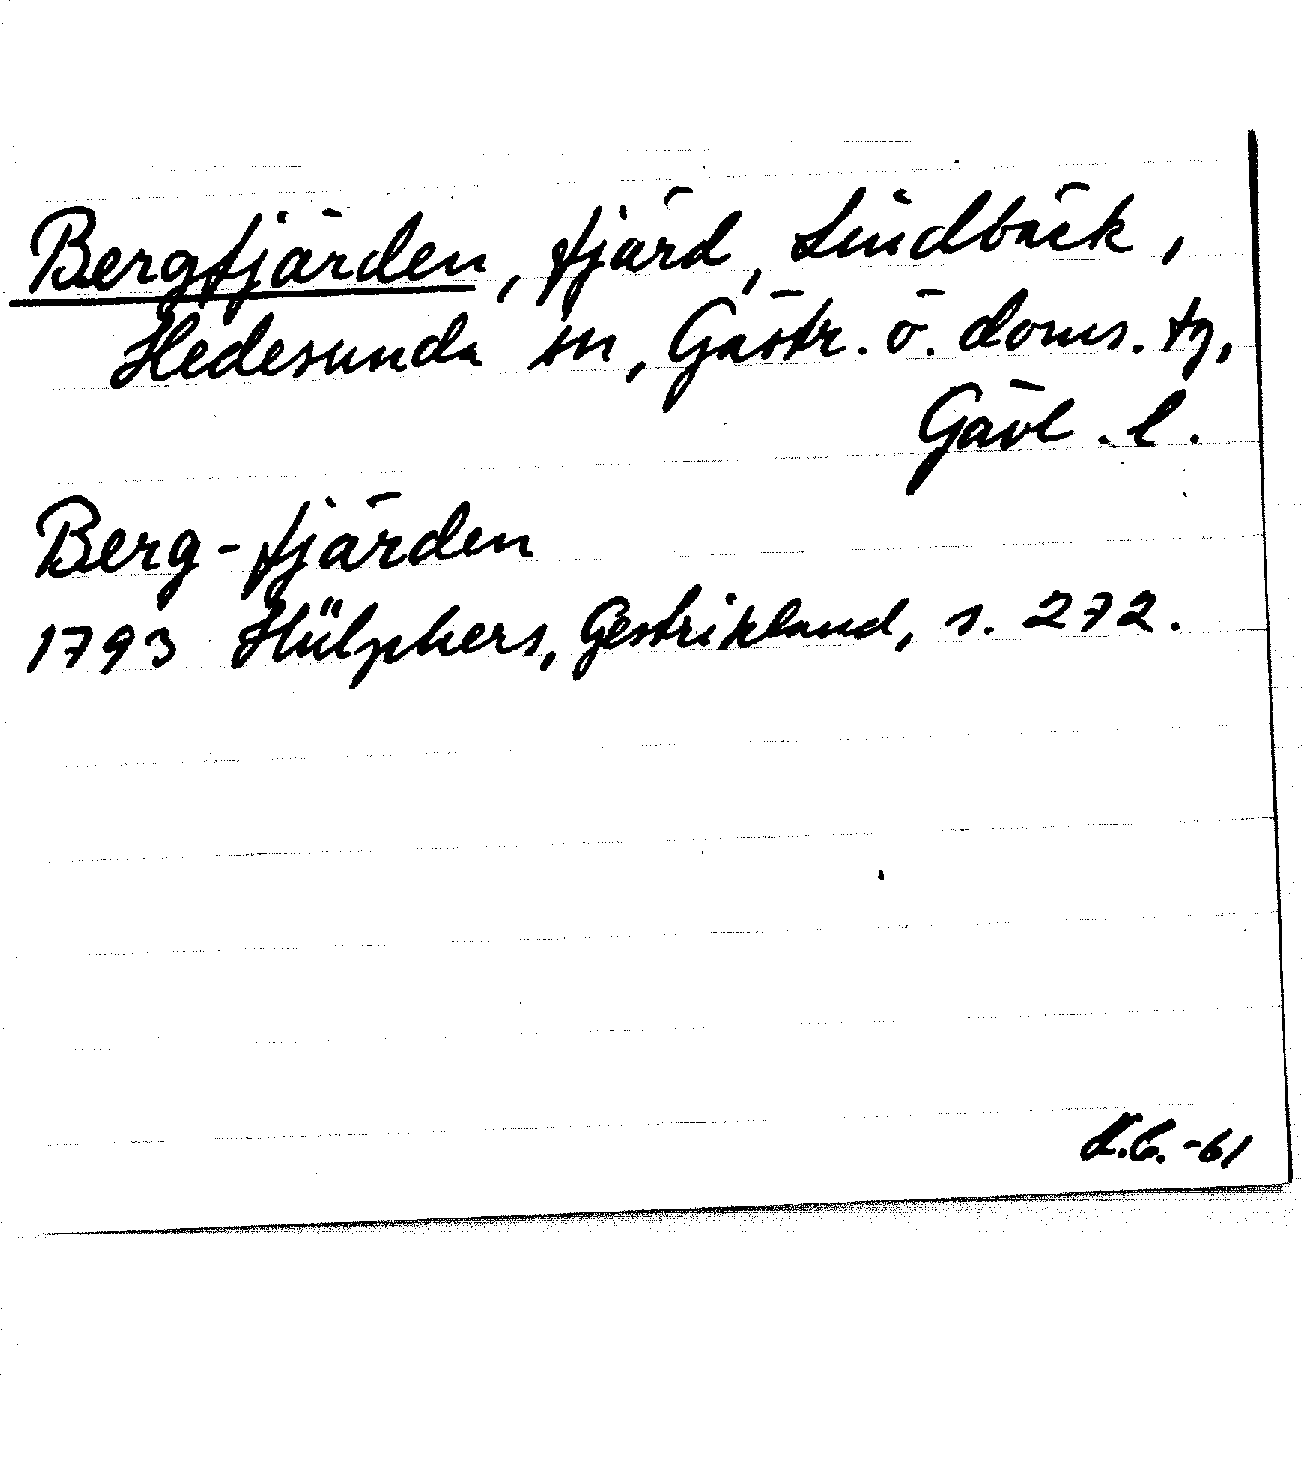 Bergfjärden, fjärd, Lindbäck,
Hedesunda sn, Gästr. ö. doms. tg,
Gävl. l.
Berg-fjärden
1793 Hülphers, Gestrikland, s. 272.
K.C. -61